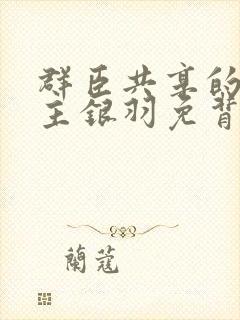 群臣共享的
主银羽免背
蘭蔻